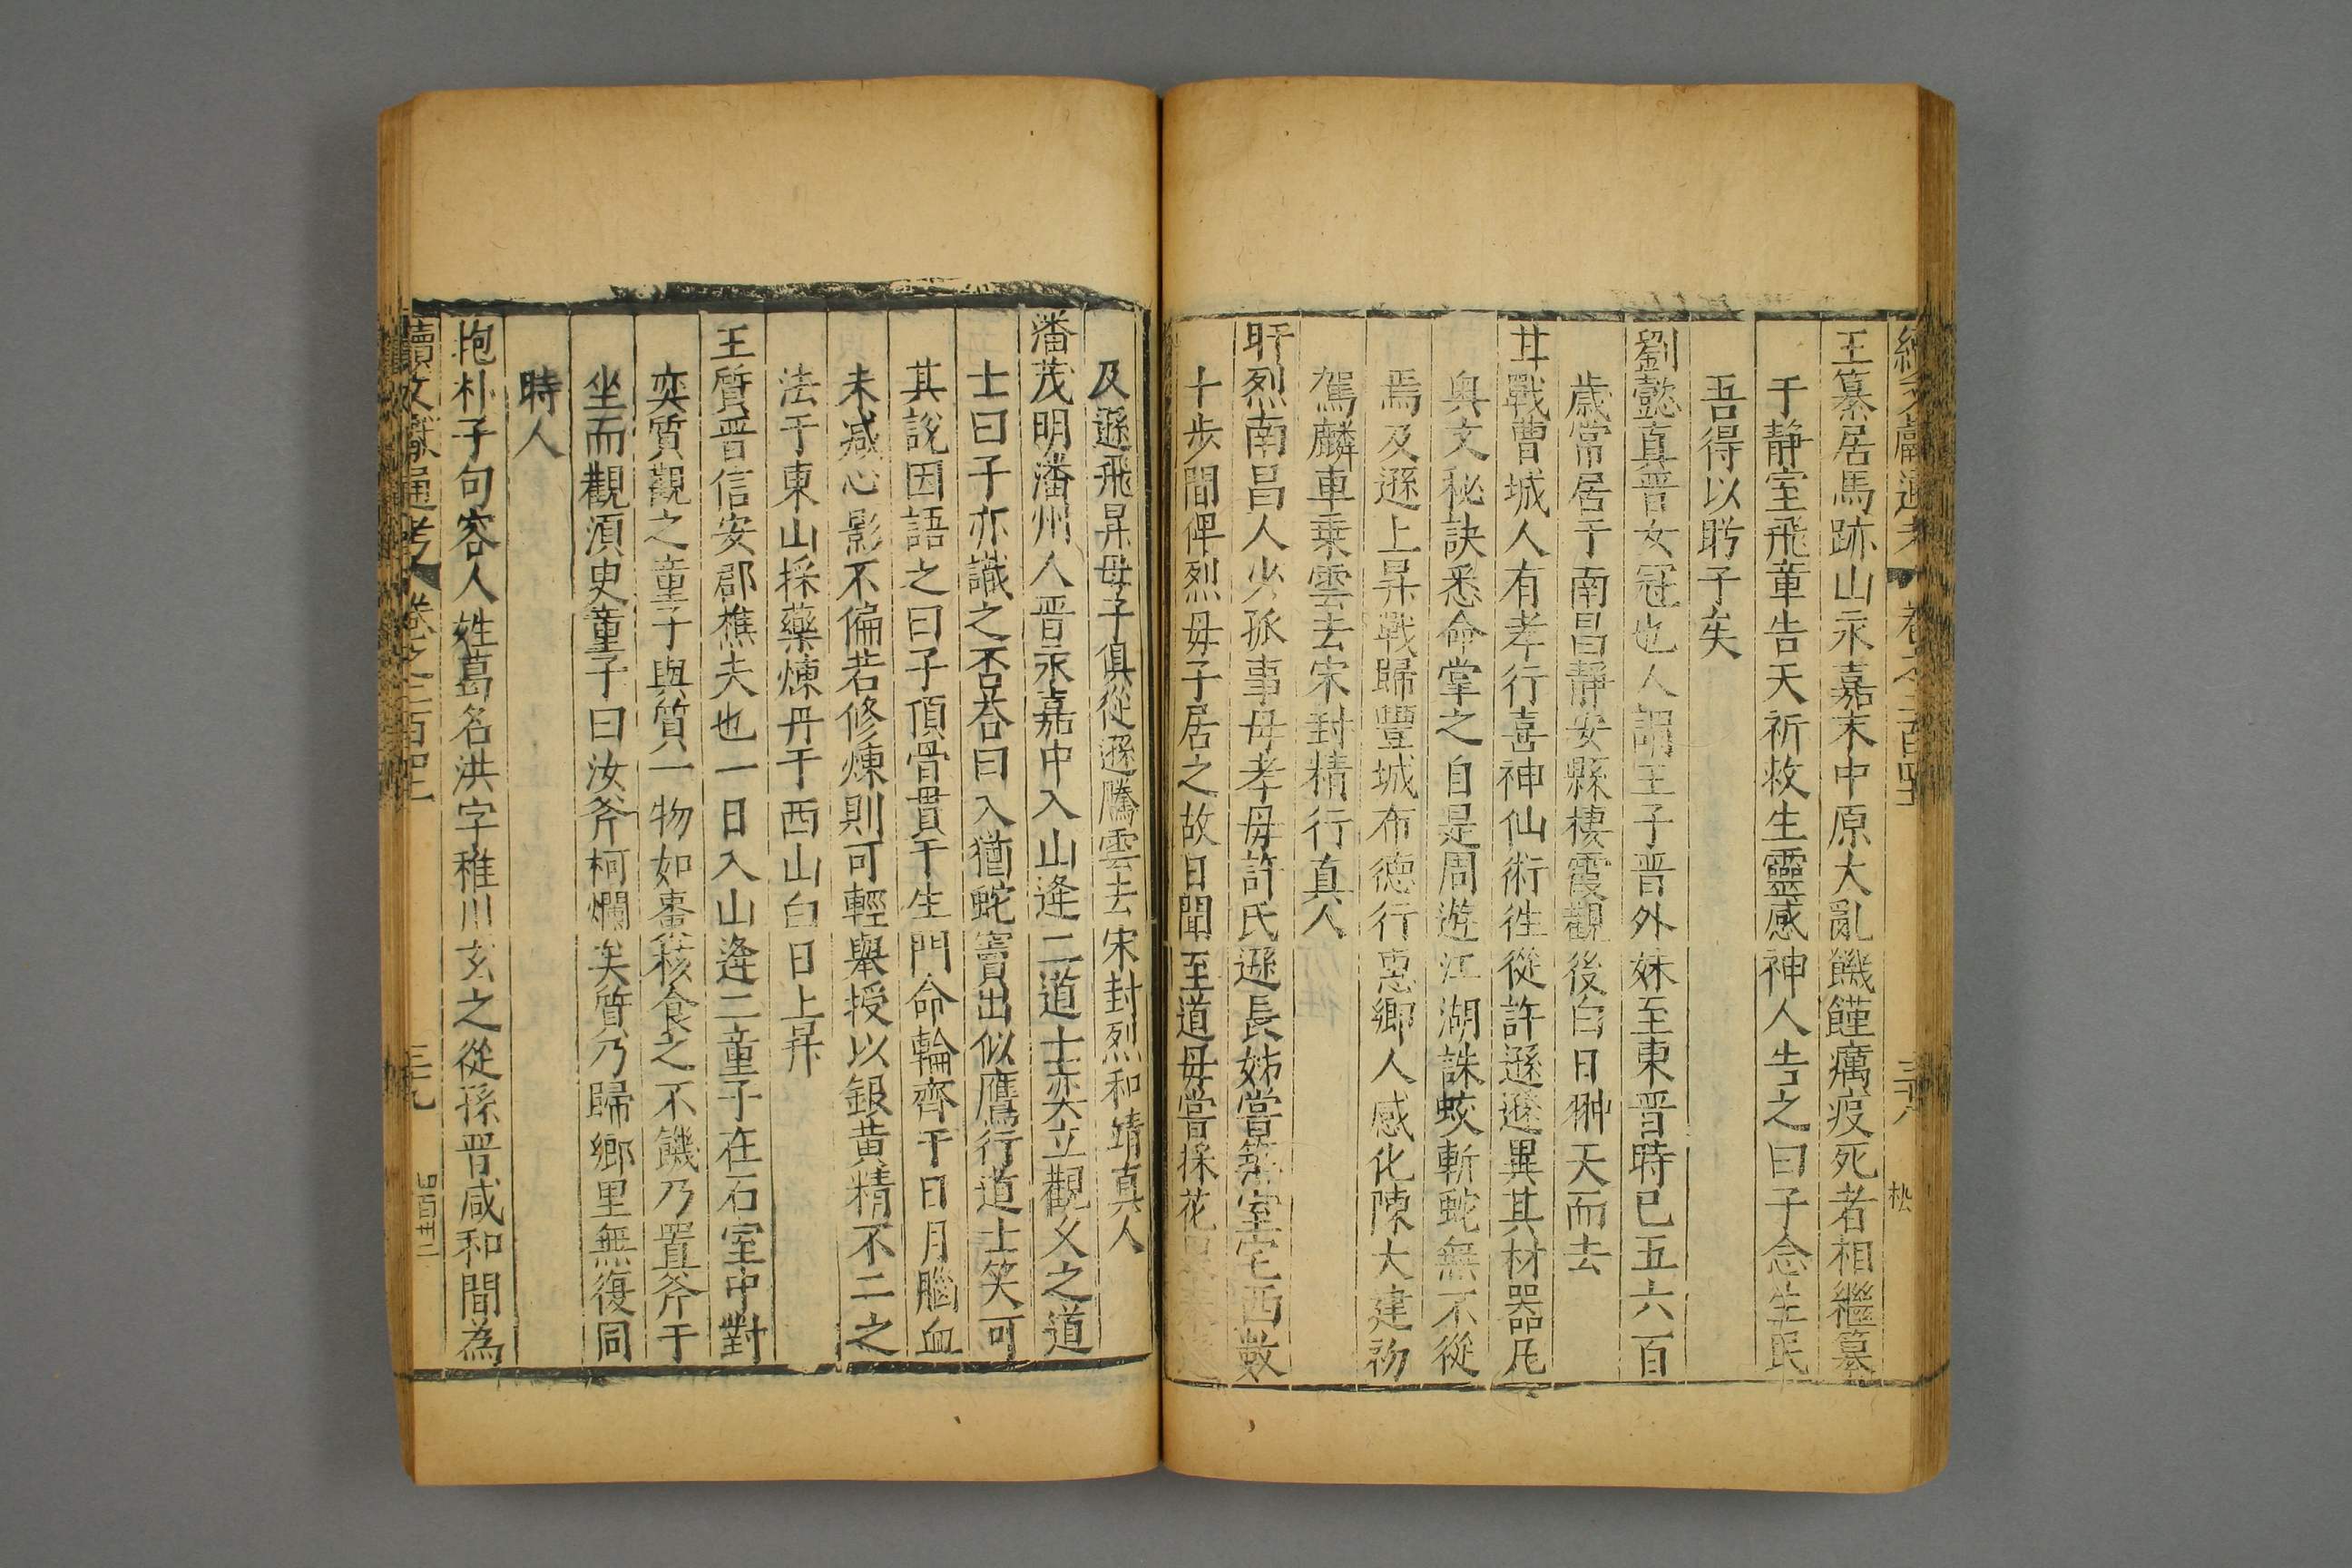 王纂居馬跡山永嘉末中原大亂饑饉癘疫死者相繼纂
于静室飛章告天祈救生靈感神人告之曰子念生民
吾得以盻子矣
劉懿真晋女冠也人謂王子晋外妹至東晋時已五六百
歳常居于南昌靜安縣棲霞觀後白日翀天而去
甘戰曹城人有孝行喜神仙術徃從許遜遜異其材器凡
奥文秘訣悉命掌之自是周遊江湖誅蛟斬蛇無不從
焉及遜上昇戰歸豐城布德行惠鄉人感化陳大建初
駕麟車乗雲去宋封精行真人
盱烈南昌人少孤事母孝母許氏遜長姊嘗築室宅西數
十步間俾烈母子居之故日聞至道母嘗採花
及遜飛昇母子俱從遜騰雲去宋封烈和靖真人
潘茂明潘州人晋永嘉中入山逄二道士奕立觀乆之道
士曰子亦識之否荅曰入猶蛇竇出似鴈行道士笑可
其說因語之曰子頂骨貫于生門命輪齊于日月腦血
未减心影不偏若修煉則可輕舉授以銀黄精不二之
法于東山採藥煉丹于西山白日上昇
王質晋信安郡樵夫也一日入山逄二童子在石室中對
奕質觀之童子與質一物如棗核食之不饑乃置斧于
坐而觀湏叟童子曰汝斧柯爛矣質乃歸鄉里無復同
時人
抱朴子句容人姓葛名洪字稚川玄之從孫晋咸和間為
續文獻通考 卷之二百四十一 三九 四百卅二